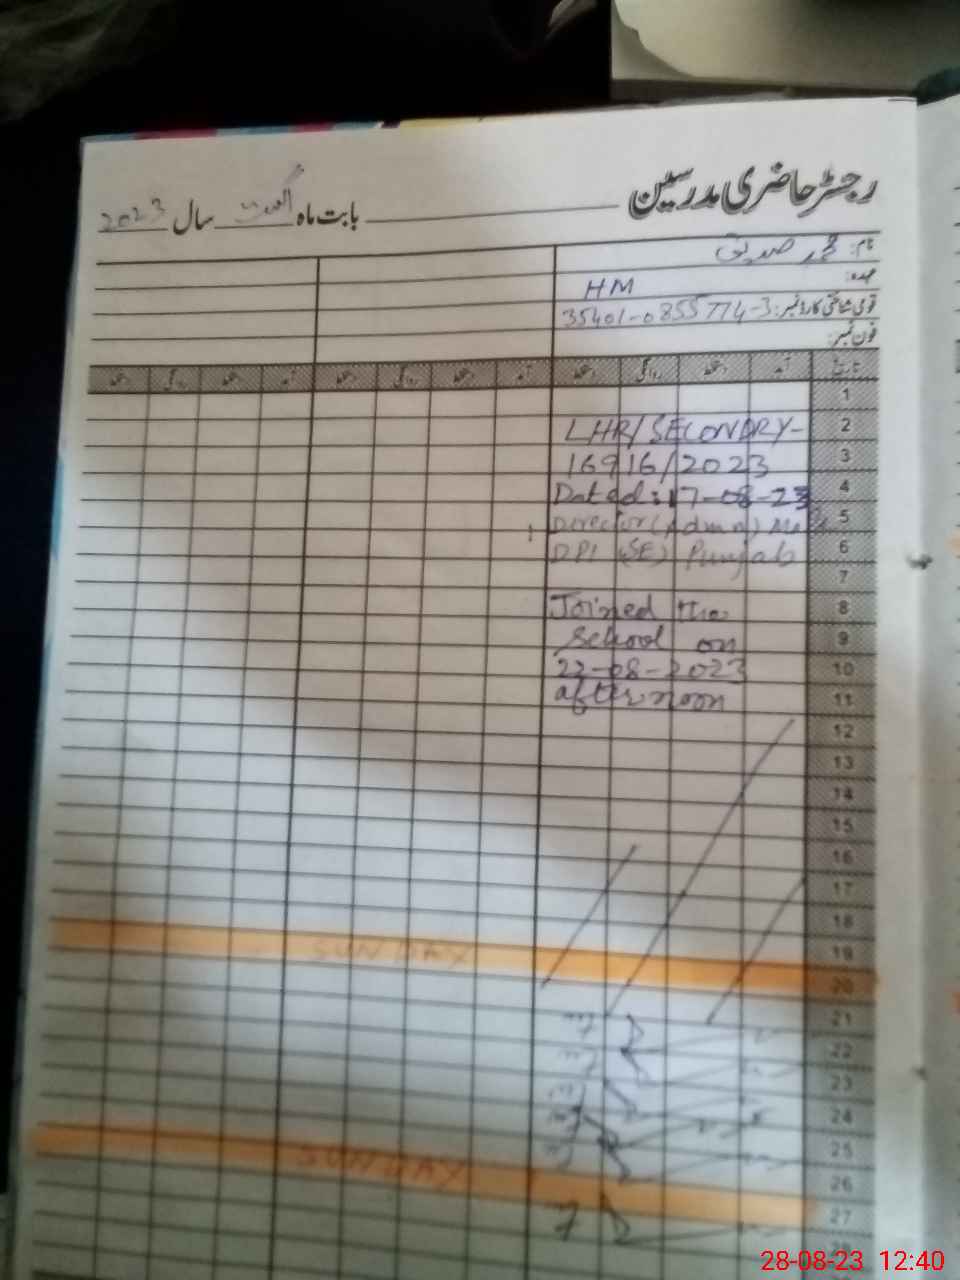 رجسٹر حاضری مدرسین
بابت ماہ اگست سال 2023
نام: محمد صدیق
عہدہ: HM
قومی شناختی کارڈ نمبر: 35401-0855774-3
فون نمبر:
تاریخ آمد دستخط روانگی دستخط آمد دستخط روانگی دستخط آمد دستخط روانگی دستخط
1
2 LHR/SECONDRY-
3 16916/2023
4 Dated: 17-08-23
5 Director (Admn)
6 DPI (SE) Punjab
7
8 Joined the
9 school on
10 22-08-2023
11 after noon
12
13
14
15
16
17
18
19
SUNDAY
20
21
22
23
24
25
26
SUNDAY
27
28
28-08-23 12:40